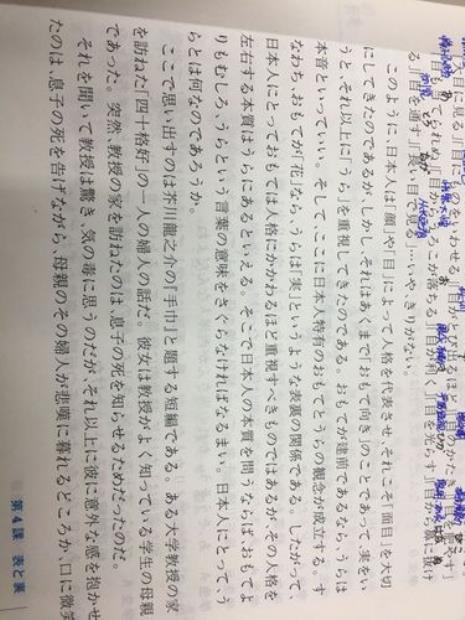 「大目に見る」「目にものをいわせる」「目がとび出るほど」「目のかたき」
も」「目から」うろこが落ちる」「目が利く」「目を光らす」「目から鼻に抜け
る」「目を通す」「長い目で見る」…いや、きりがない。
このように、日本人は「顔」や「目」によって人格を代表させ、それこそ「面目」を大切
にしてきたのであるが、しかし、それはあくまで「おもて向き」のことであって、実をい
うと、それ以上に「うら」を重視してきたのである。おもてが建前であるなら、うらは
本音といっていい。そして、ここに日本人特有のおもてとうらの観念が成立する。す
なわち、おもてが「花」なら、うらは「実」というような表裏の関係である。したがって、
日本人にとっておもては人格にかかわるほど重視すべきものではあるが、その人格を
左右する本質はうらにあるといえる。そこで日本人の本質を問うならば、おもてよ
りもむしろ、うらという言葉の意味をさぐらなければなるまい。日本人にとって、う
らとは何なのであろうか。
ここで思い出すのは芥川龍之介の『手巾』と題する短編である。ある大学教授の家
を訪ねた「四十格好」の一人の婦人の話だ。彼女は教授がよく知っている学生の母親
であった。突然、教授の家を訪ねたのは、息子の死を知らせるためだったのだ。
それを聞いて教授は驚き、気の毒に思うのだが、それ以上に彼に意外な感を抱かせ
たのは、息子の死を告げながら、母親のその婦人が悲嘆に暮れるどころか、口に微笑
第4課 表と裏